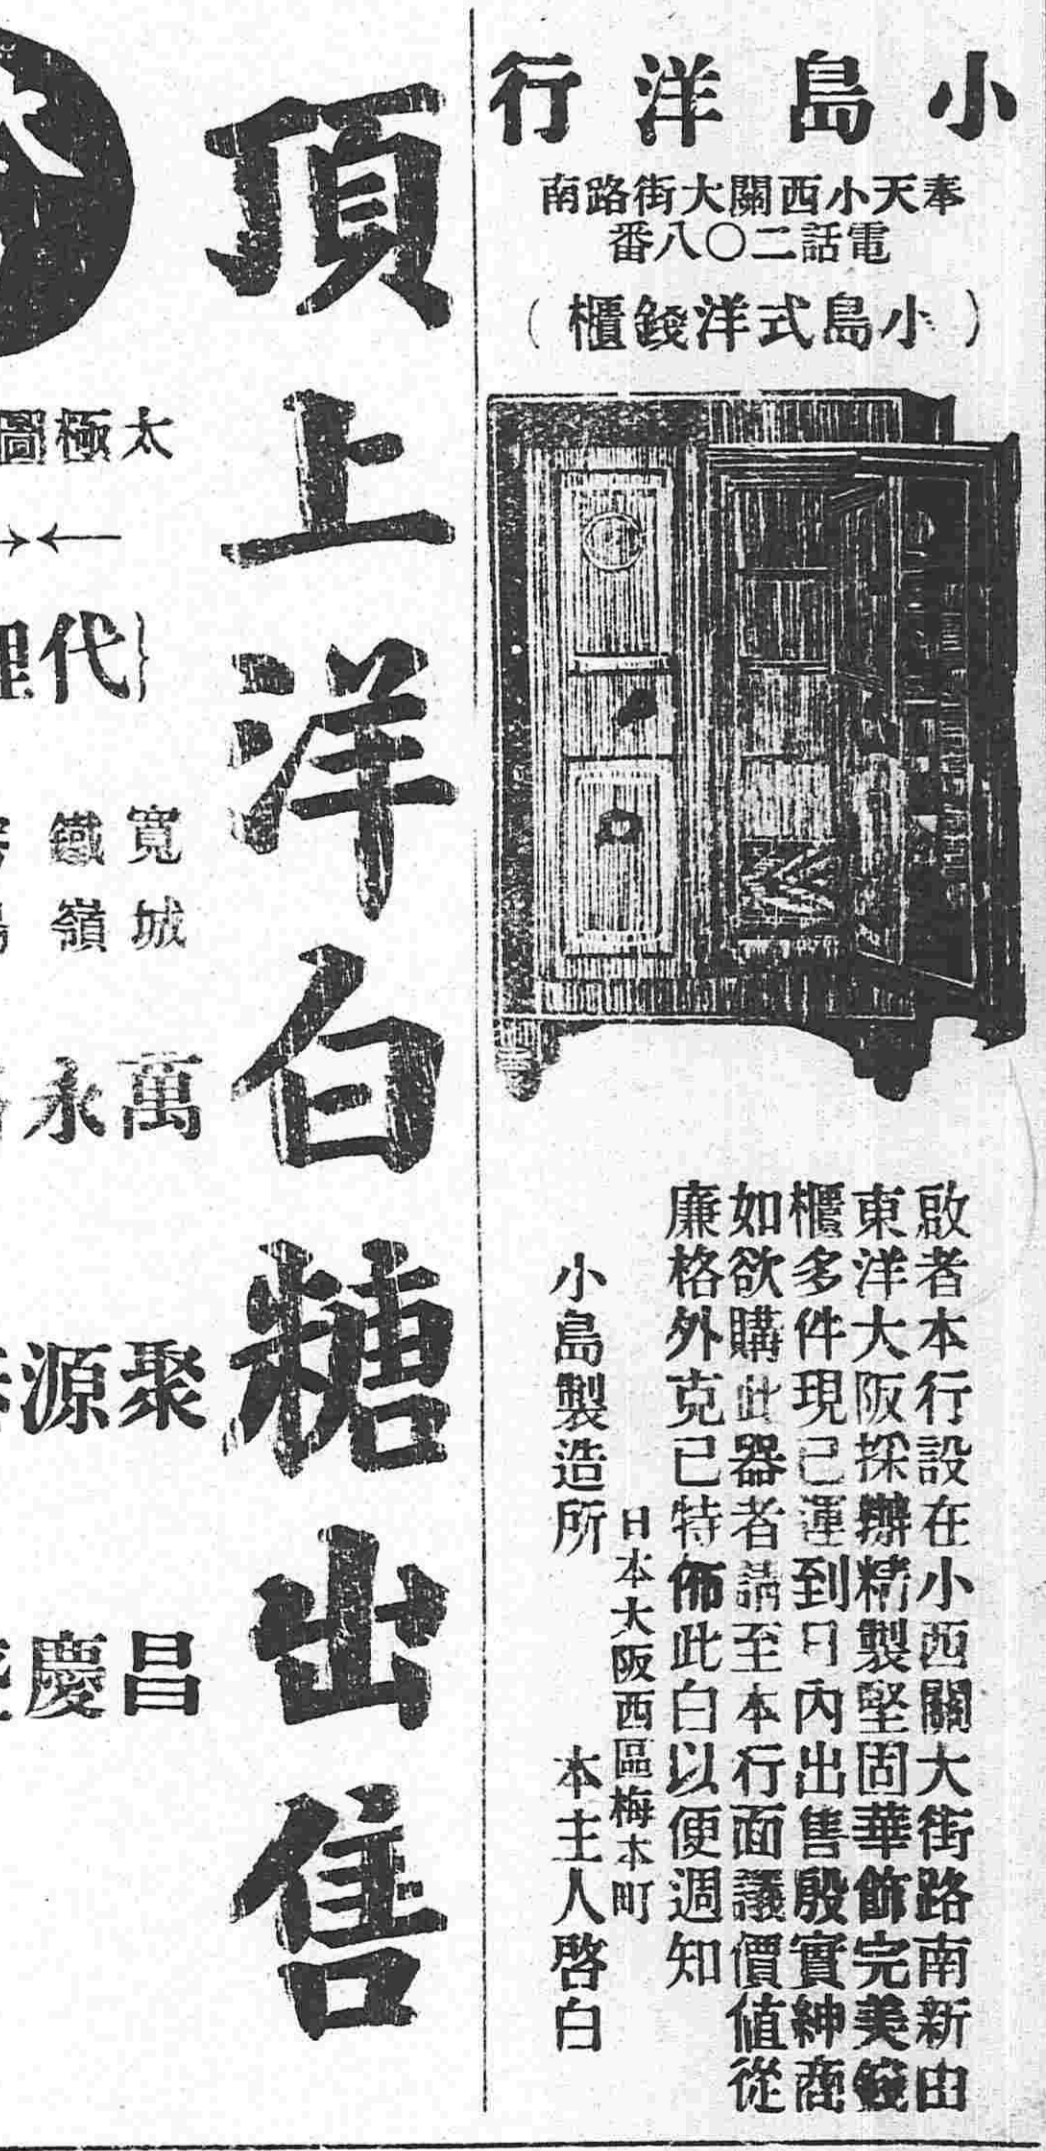 小島洋行
奉天小西關大街路南
電話二〇八番
（小島式洋錢櫃）
啟者本行設在小西關大街路南新由
東洋大阪採辦精製堅固華飾完美錢
櫃多件現已運到日內出售殷實紳商
如欲購此器者請至本行面議價值從
廉格外克已特佈此白以便週知
日本大阪西區梅本町
小島製造所　本主人啓白
頂上洋白糖出售
太極圖
代理
寬城
鐵嶺
萬永
聚源
昌慶